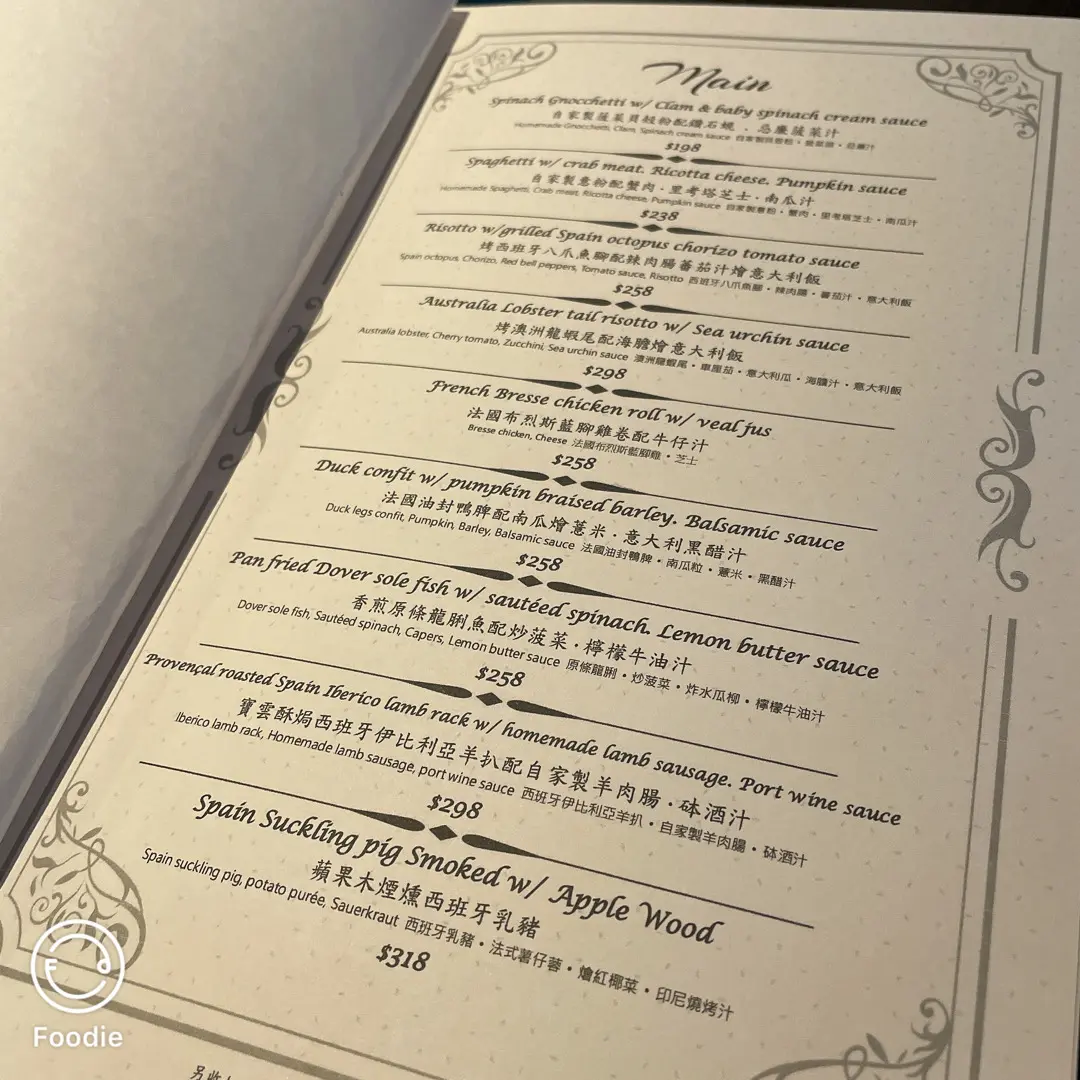 Main
Spinach Gnocchetti w/ Clam & baby spinach cream sauce
自家製菠菜貝殼粉配鑽石蜆．忌廉菠菜汁
Homemade Gnocchetti, Clam, Spinach cream sauce 自家製貝殼粉・
$198
Spaghetti w/ crab meat. Ricotta cheese. Pumpkin sauce
自家製意粉配蟹肉·里考塔芝士·南瓜汁
Homemade Spaghetti, Crab meat, Ricotta cheese, Pumpkin sauce 自家製意粉・蟹肉・里考塔芝士・南瓜汁
$238
Risotto w/grilled Spain octopus chorizo tomato sauce
烤西班牙八爪魚腳配辣肉腸蕃茄汁燴意大利飯
Spain octopus, Chorizo, Red bell peppers, Tomato sauce, Risotto 西班牙八爪魚腳・辣肉腸・蕃茄汁・意大利飯
$258
Australia Lobster tail risotto w/ Sea urchin sauce
烤澳洲龍蝦尾配海膽燴意大利飯
Australia lobster, Cherry tomato, Zucchini, Sea urchin sauce 澳洲龍蝦尾・車厘茄・意大利瓜・海膽汁・意大利飯
$298
French Bresse chicken roll w/ veal jus
法國布烈斯藍腳雞卷配牛仔汁
Bresse chicken, Cheese 法國布烈斯藍腳雞・芝士
$258
Duck confit w/ pumpkin braised barley. Balsamic sauce
法國油封鴨脾配南瓜燴薏米·意大利黑醋汁
Duck legs confit, Pumpkin, Barley, Balsamic sauce 法國油封鴨脾・南瓜粒・薏米・黑醋汁
$258
Pan fried Dover sole fish w/ sautéed spinach. Lemon butter sauce
香煎原條龍脷魚配炒菠菜·檸檬牛油汁
Dover sole fish, Sautéed spinach, Capers, Lemon butter sauce 原條龍脷・炒菠菜・炸水瓜柳・檸檬牛油汁
$258
Provençal roasted Spain Iberico lamb rack w/ homemade lamb sausage. Port wine sauce
寶雲酥焗西班牙伊比利亞羊扒配自家製羊肉腸·砵酒汁
Iberico lamb rack, Homemade lamb sausage, port wine sauce 西班牙伊比利亞羊扒・自家製羊肉腸・砵酒汁
$298
Spain Suckling pig Smoked w/ Apple Wood
蘋果木煙燻西班牙乳豬
Spain suckling pig, potato purée, Sauerkraut 西班牙乳豬・法式薯仔蓉・燴紅椰菜・印尼燒烤汁
$318
另收
Foodie